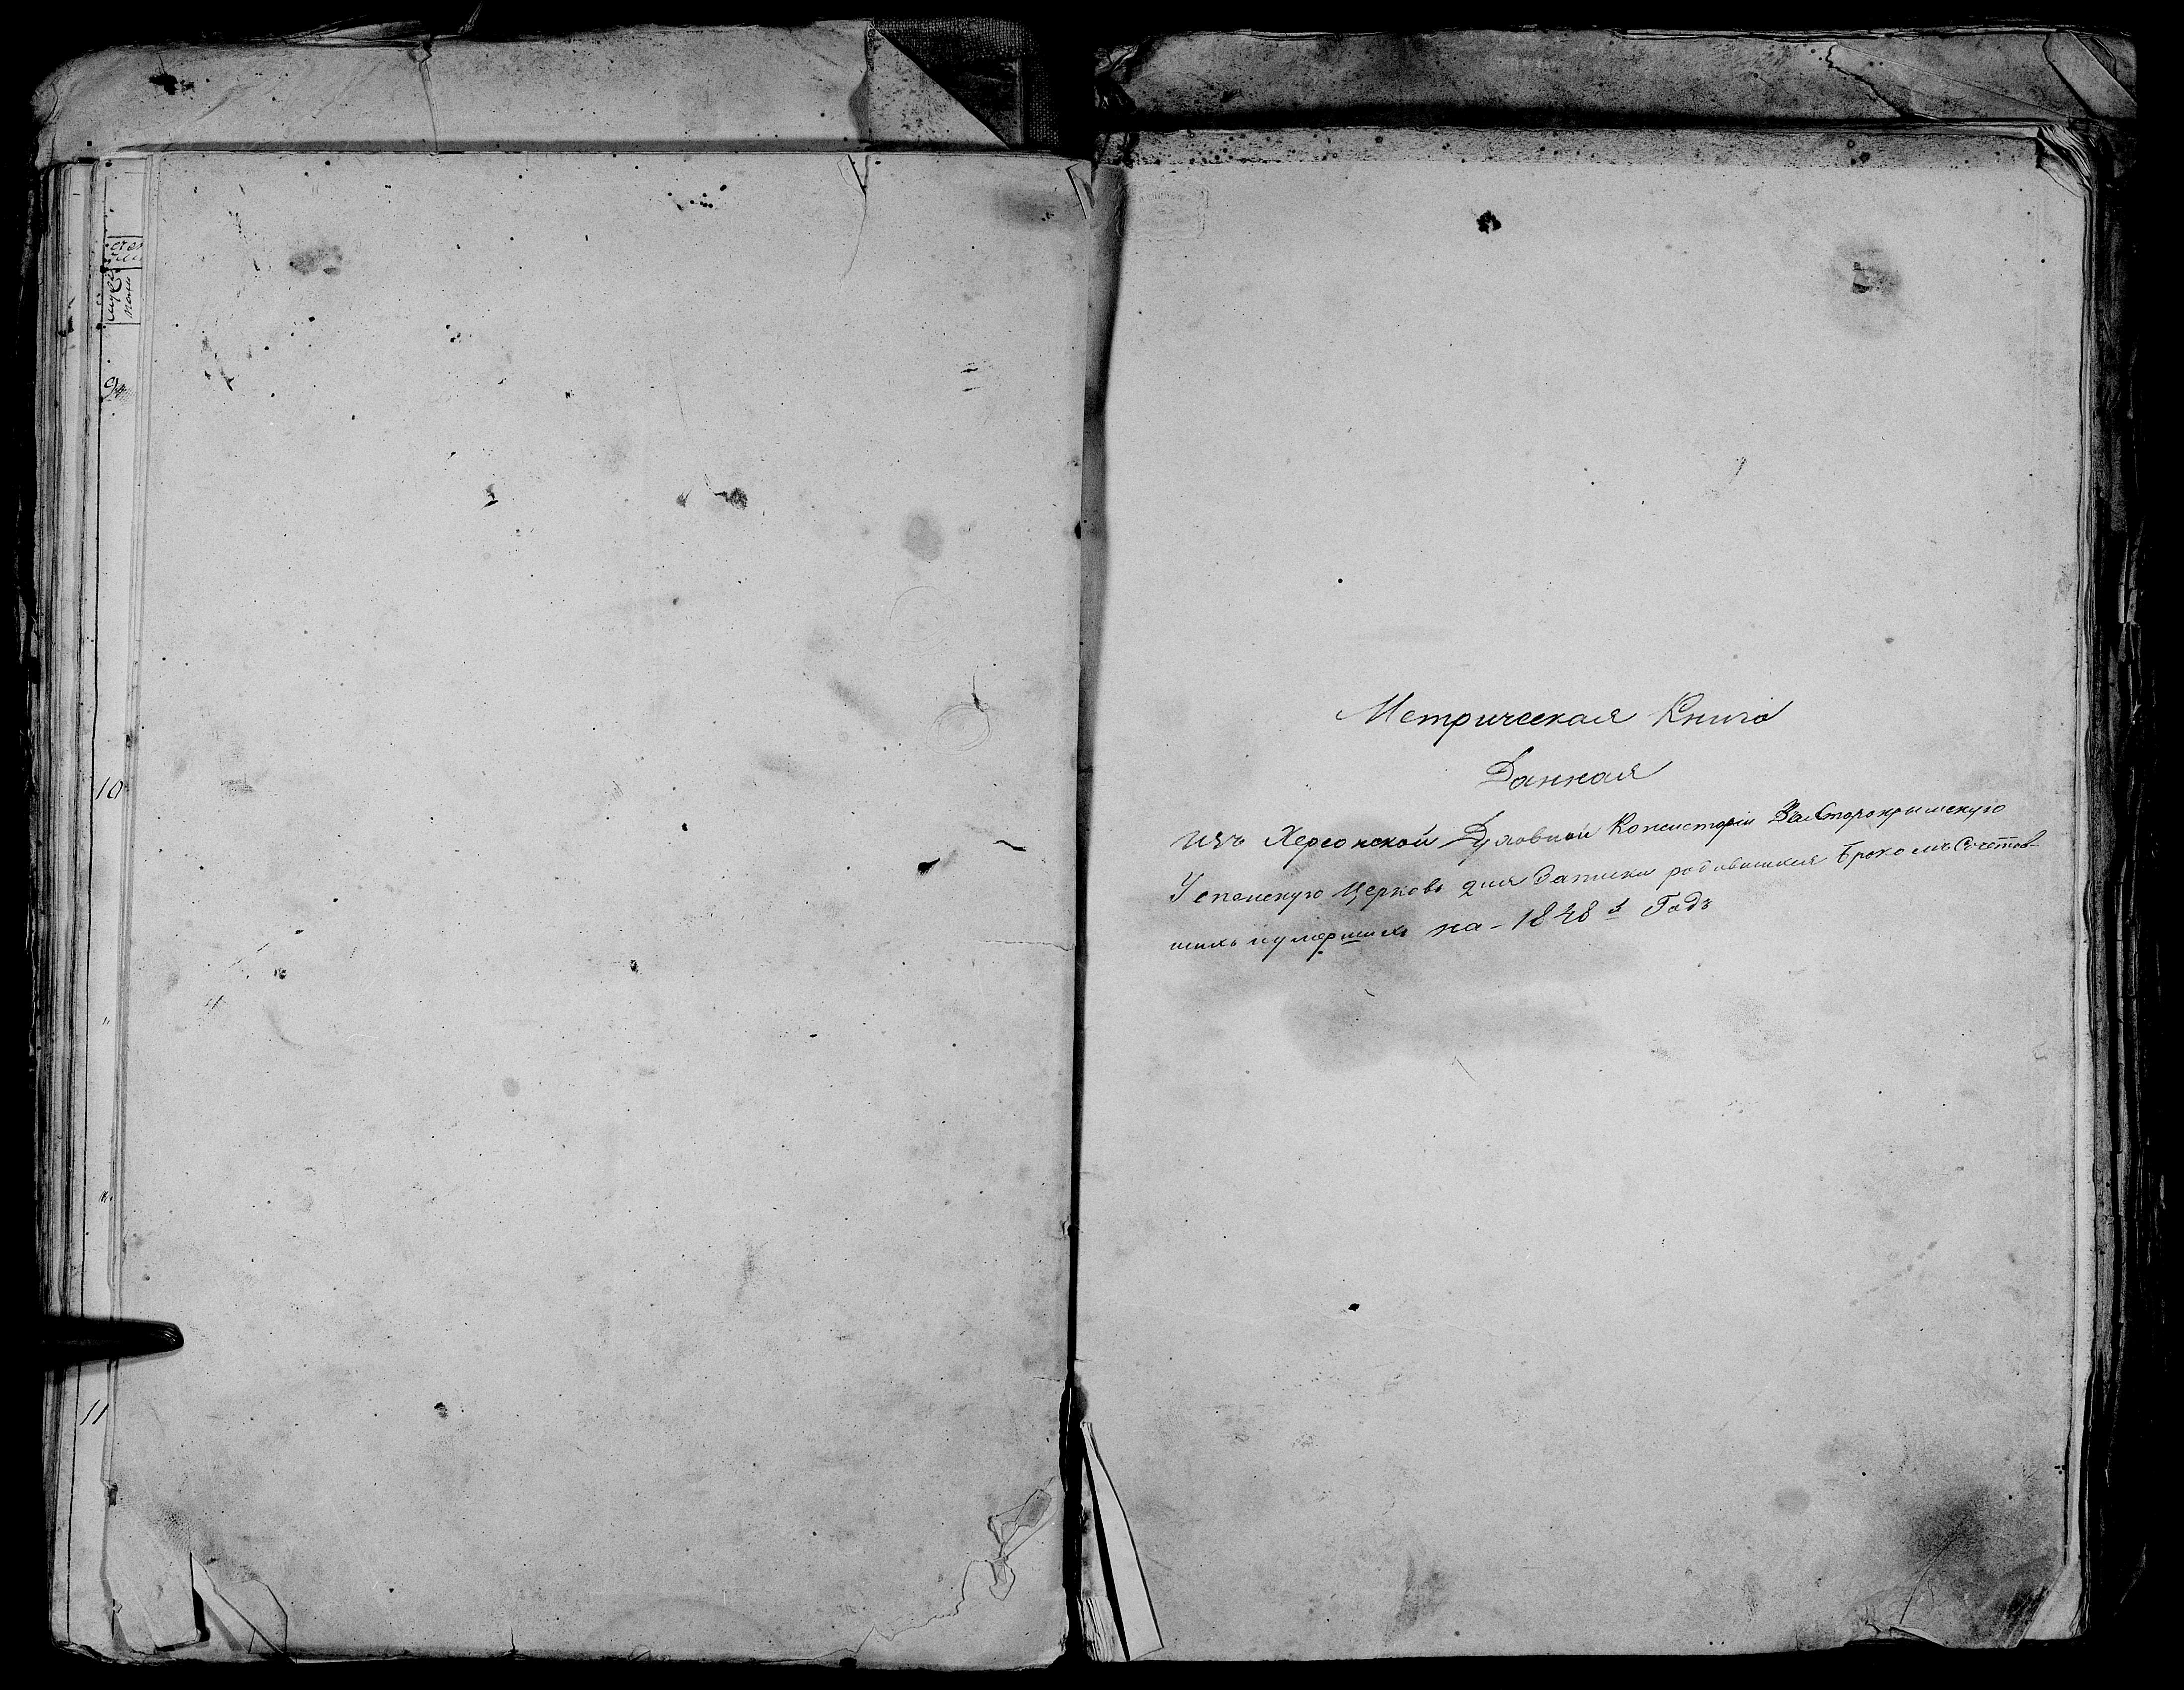 Метрическая Книга
Данная
изъ Херсонской Духовной Консисторіи Въ Старокрымскую
Успенскую Церковь для Записки родившихся Бракомъ Сочетав-
шихъ и умершихъ на - 1848 й Годъ
10
11